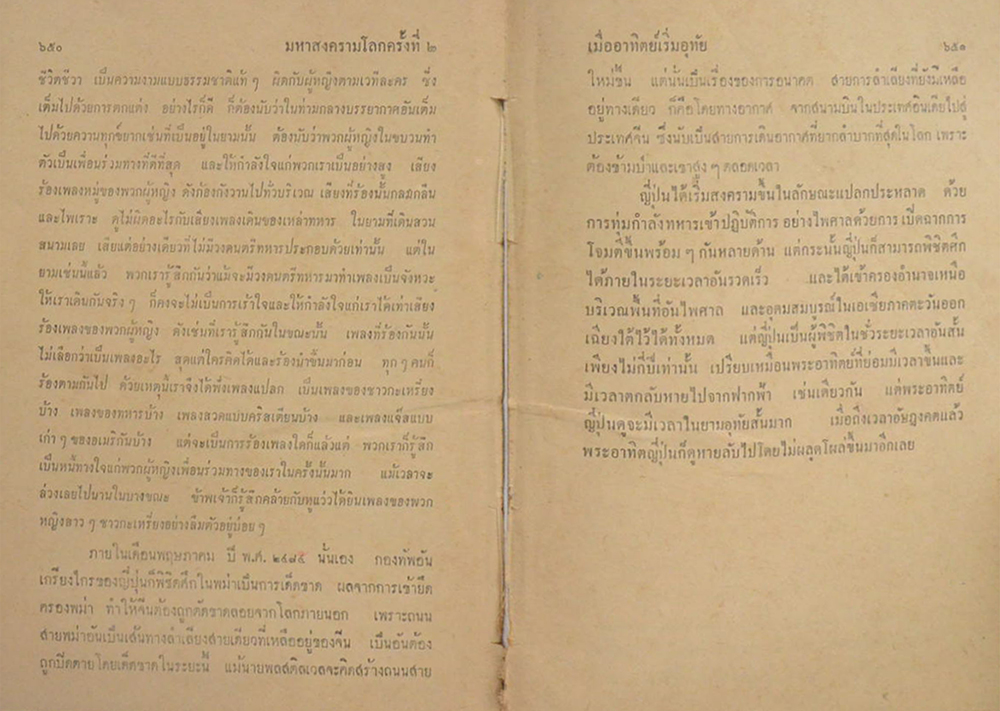 ๖๕๐ มหาสงครามโลกครั้งที่ ๒
ชีวิตชีวา เป็นความงามแบบธรรมชาติแท้ ๆ ผิดกับผู้หญิงตามเวทีละคร ซึ่ง
เต็มไปด้วยการตกแต่ง อย่างไรก็ดี ก็ต้องนับว่าในท่ามกลางบรรยากาศอันเต็ม
ไปด้วยความทุกข์ยากเช่นที่เป็นอยู่ในยามนั้น ต้องนับว่าพวกผู้หญิงในขบวนทำ
ตัวเป็นเพื่อนร่วมทางที่ดีที่สุด และให้กำลังใจแก่พวกเราเป็นอย่างสูง เสียง
ร้องเพลงหมู่ของพวกผู้หญิง ดังก้องกังวานไปทั่วบริเวณ เสียงที่ร้องนั้นกลมกลืน
และไพเราะ ดูไม่ผิดอะไรกับเสียงเพลงเดินของเหล่าทหาร ในยามที่เดินสวน
สนามเลย เสียแต่อย่างเดียวที่ไม่มีวงดนตรีทหารประกอบด้วยเท่านั้น แต่ใน
ยามเช่นนี้แล้ว พวกเรารู้สึกกันว่าแม้จะมีวงดนตรีทหารมาทำเพลงเป็นจังหวะ
ให้เราเดินกันจริง ๆ ก็คงจะไม่เป็นการเร้าใจและให้กำลังใจแก่เราได้เท่าเสียง
ร้องเพลงของพวกผู้หญิง ดังเช่นที่เรารู้สึกกันในขณะนั้น เพลงที่ร้องกันนั้น
ไม่เลือกว่าเป็นเพลงอะไร สุดแต่ใครคิดได้และร้องนำขึ้นมาก่อน ทุก ๆ คนก็
ร้องตามกันไป ด้วยเหตุนี้เราจึงได้ฟังเพลงแปลก เป็นเพลงของชาวกะเหรี่ยง
บ้าง เพลงของทหารบ้าง เพลงสวดแบบคริสเตียนบ้าง และเพลงแจ๊สแบบ
เก่า ๆ ของอเมริกันบ้าง แต่จะเป็นการร้องเพลงใดก็แล้วแต่ พวกเราก็รู้สึก
เป็นหนี้ทางใจแก่พวกผู้หญิงเพื่อนร่วมทางของเราในครั้งนั้นมาก แม้เวลาจะ
ล่วงเลยไปนานในบางขณะ ข้าพเจ้าก็รู้สึกคล้ายกับหูแว่วได้ยินเพลงของพวก
หญิงสาว ๆ ชาวกะเหรี่ยงอย่างลืมตัวอยู่บ่อย ๆ
ภายในเดือนพฤษภาคม ปี พ.ศ. ๒๔๘๕ นั้นเอง กองทัพอัน
เกรียงไกรของญี่ปุ่นก็พิชิตศึกในพม่าเป็นการเด็ดขาด ผลจากการเข้ายึด
ครองพม่า ทำให้จีนต้องถูกตัดขาดลอยจากโลกภายนอก เพราะถนน
สายพม่าอันเป็นเส้นทางลำเลียงสายเดียวที่เหลืออยู่ของจีน เป็นอันต้อง
ถูกปิดตายโดยเด็ดขาดในระยะนี้ แม้นายพลสติลเวลจะคิดสร้างถนนสาย
เมื่ออาทิตย์เริ่มอุทัย ๖๕๑
ใหม่ขึ้น แต่นั่นเป็นเรื่องของการอนาคต สายการลำเลียงที่ยังมีเหลือ
อยู่ทางเดียว ก็คือโดยทางอากาศ จากสนามบินในประเทศอินเดียไปสู่
ประเทศจีน ซึ่งนับเป็นสายการเดินอากาศที่ยากลำบากที่สุดในโลก เพราะ
ต้องข้ามป่าและเขาสูง ๆ ตลอดเวลา
ญี่ปุ่นได้เริ่มสงครามขึ้นในลักษณะแปลกประหลาด ด้วย
การทุ่มกำลังทหารเข้าปฏิบัติการ อย่างไพศาลด้วยการ เปิดฉากการ
โจมตีขึ้นพร้อม ๆ กันหลายด้าน แต่กระนั้นญี่ปุ่นก็สามารถพิชิตศึก
ได้ภายในระยะเวลาอันรวดเร็ว และได้เข้าครองอำนาจเหนือ
บริเวณพื้นที่อันไพศาล และอุดมสมบูรณ์ในเอเซียภาคตะวันออก
เฉียงใต้ไว้ได้ทั้งหมด แต่ญี่ปุ่นเป็นผู้พิชิตในชั่วระยะเวลาอันสั้น
เพียงไม่กี่ปีเท่านั้น เปรียบเหมือนพระอาทิตย์ที่ย่อมมีเวลาขึ้นและ
มีเวลาตกลับหายไปจากฟากฟ้า เช่นเดียวกัน แต่พระอาทิตย์
ญี่ปุ่นดูจะมีเวลาในยามอุทัยสั้นมาก เมื่อถึงเวลาอัษฎงคตแล้ว
พระอาทิตย์ญี่ปุ่นก็ดูหายลับไปโดยไม่ผลุดโผล่ขึ้นมาอีกเลย